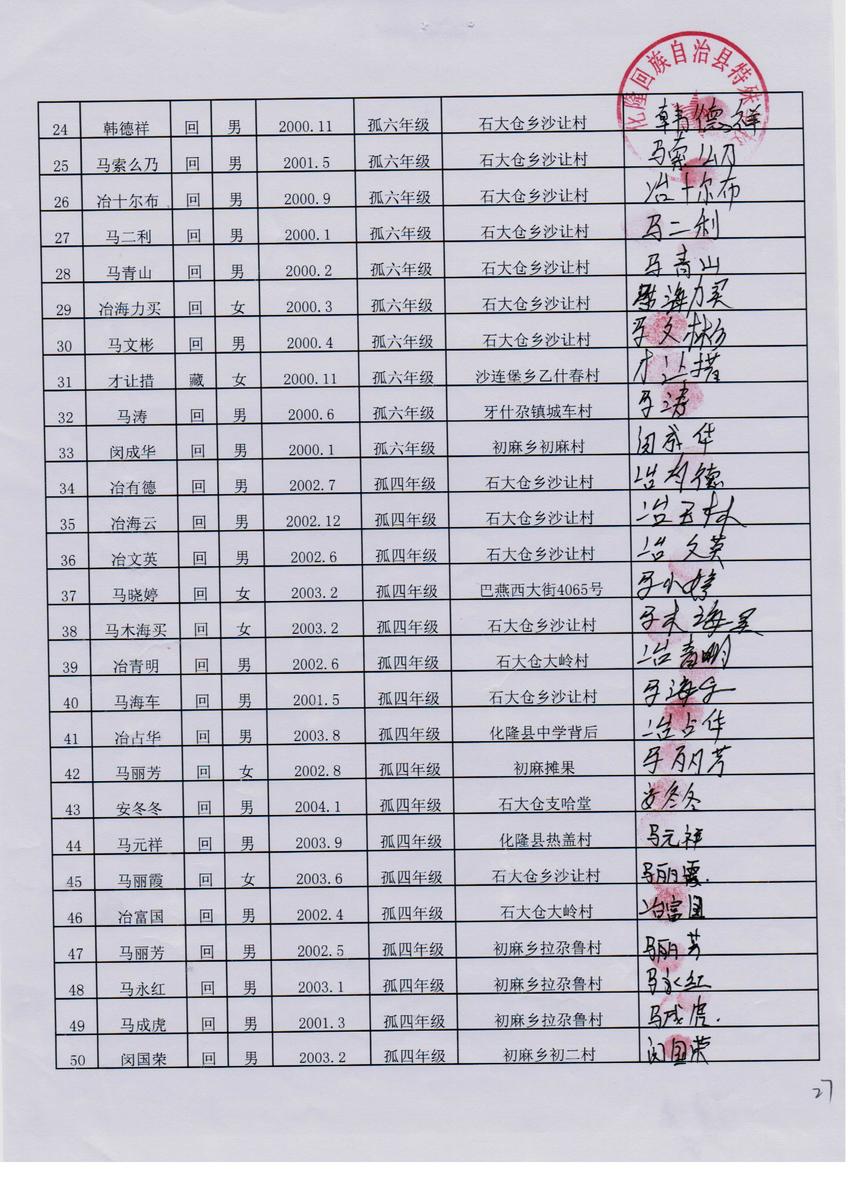 化隆回族自治县特殊
24 韩德祥 回 男 2000.11 孤六年级 石大仓乡沙让村 韩德祥
25 马索么乃 回 男 2001.5 孤六年级 石大仓乡沙让村 马索么乃
26 冶十尔布 回 男 2000.9 孤六年级 石大仓乡沙让村 冶十尔布
27 马二利 回 男 2000.1 孤六年级 石大仓乡沙让村 马二利
28 马青山 回 男 2000.2 孤六年级 石大仓乡沙让村 马青山
29 冶海力买 回 女 2000.3 孤六年级 石大仓乡沙让村 海力买
30 马文彬 回 男 2000.4 孤六年级 石大仓乡沙让村 马文彬
31 才让措 藏 女 2000.11 孤六年级 沙连堡乡乙什春村 才让措
32 马涛 回 男 2000.6 孤六年级 牙什尕镇城车村 马涛
33 闵成华 回 男 2000.1 孤六年级 初麻乡初麻村 闵成华
34 冶有德 回 男 2002.7 孤四年级 石大仓乡沙让村 冶有德
35 冶海云 回 男 2002.12 孤四年级 石大仓乡沙让村 冶
36 冶文英 回 男 2002.6 孤四年级 石大仓乡沙让村 冶文英
37 马晓婷 回 女 2003.2 孤四年级 巴燕西大街4065号 马小婷
38 马木海买 回 女 2003.2 孤四年级 石大仓乡沙让村 马木海买
39 冶青明 回 男 2002.6 孤四年级 石大仓大岭村 冶青明
40 马海车 回 男 2001.5 孤四年级 石大仓乡沙让村 马海车
41 冶占华 回 男 2003.8 孤四年级 化隆县中学背后 冶占华
42 马丽芳 回 女 2002.8 孤四年级 初麻摊果 马丽芳
43 安冬冬 回 男 2004.1 孤四年级 石大仓支哈堂 安冬冬
44 马元祥 回 男 2003.9 孤四年级 化隆县热盖村 马元祥
45 马丽霞 回 女 2003.6 孤四年级 石大仓乡沙让村 马丽霞.
46 冶富国 回 男 2002.4 孤四年级 石大仓大岭村 冶富国
47 马丽芳 回 男 2002.5 孤四年级 初麻乡拉尕鲁村 马丽芳
48 马永红 回 男 2003.1 孤四年级 初麻乡拉尕鲁村 马永红
49 马成虎 回 男 2001.3 孤四年级 初麻乡拉尕鲁村 马成虎.
50 闵国荣 回 男 2003.2 孤四年级 初麻乡初二村 闵国荣
27